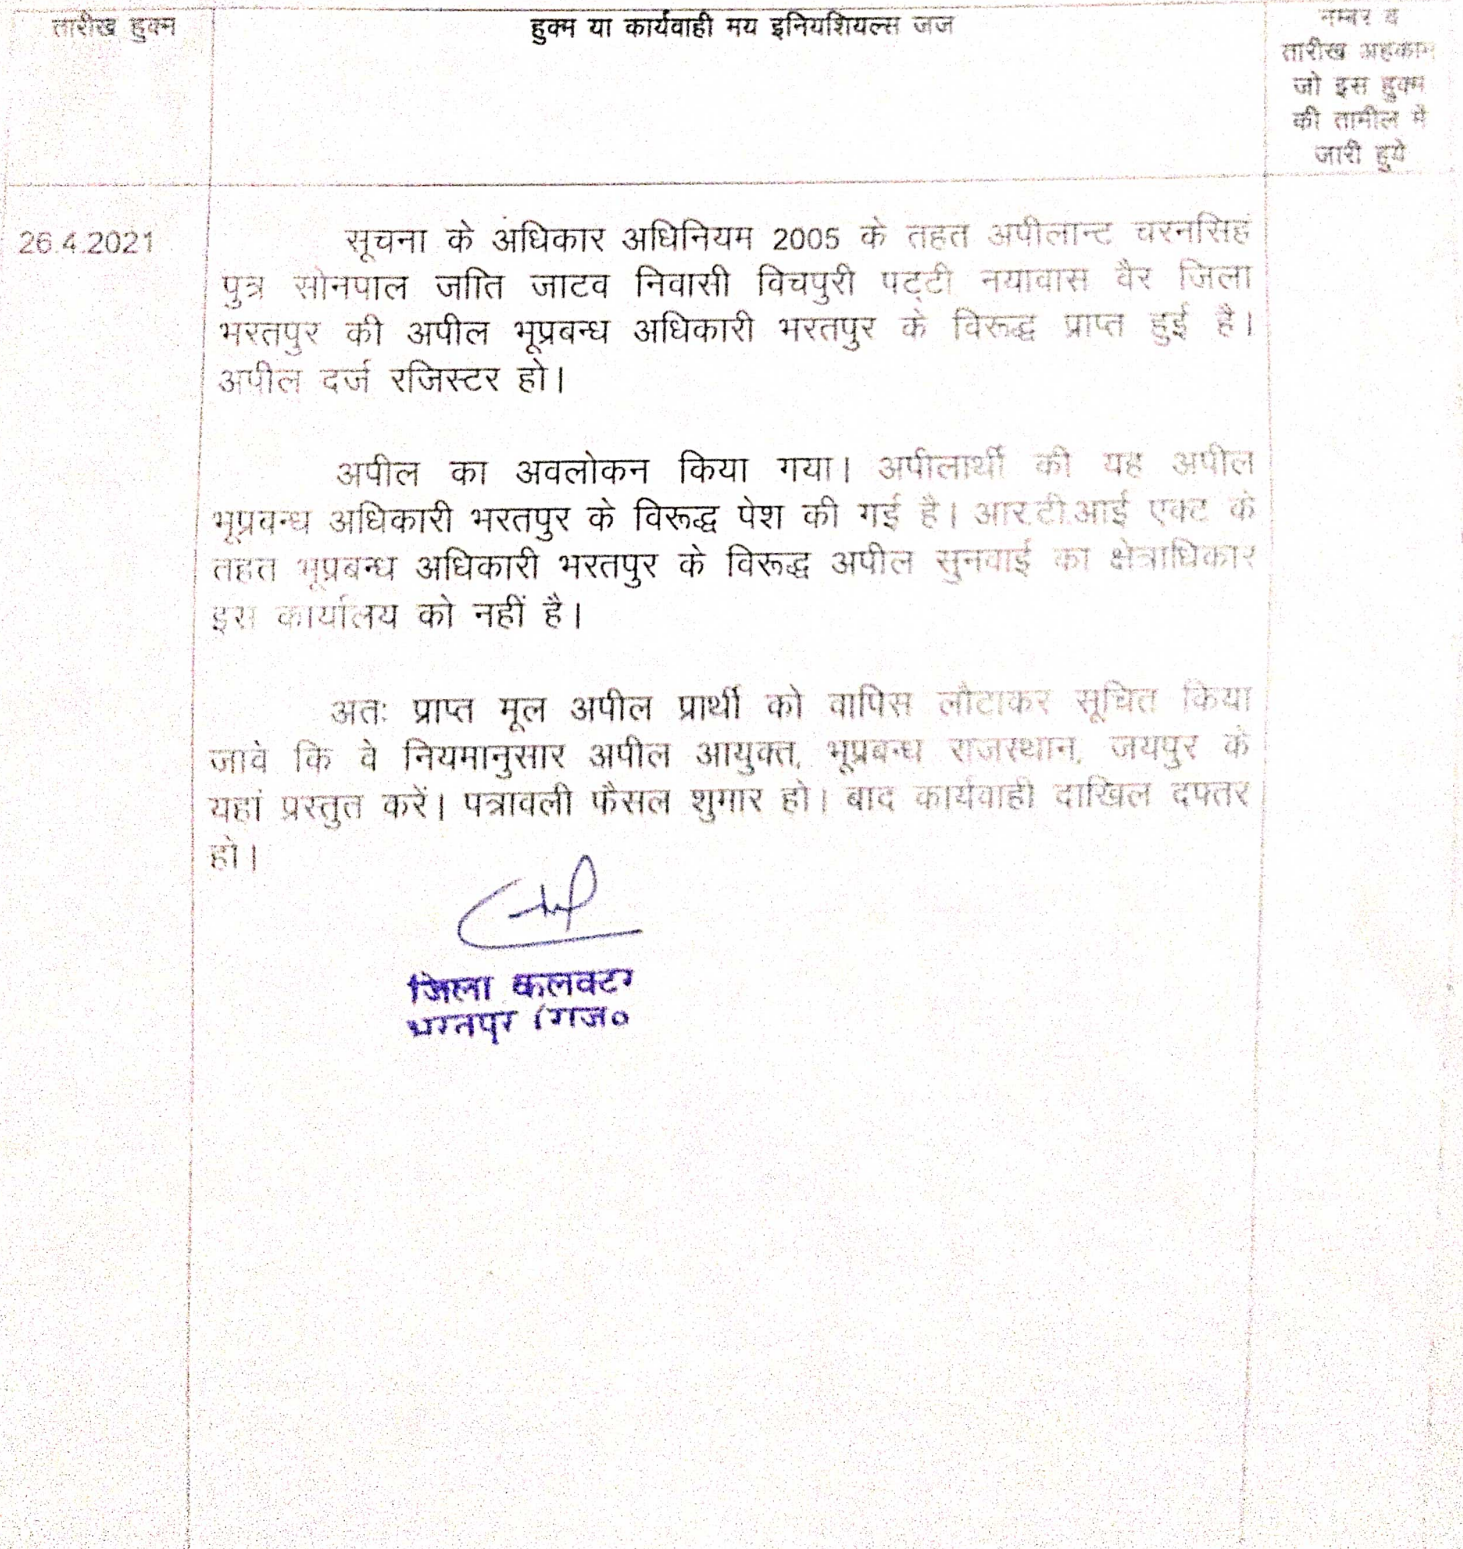 तारीख हुक्म
हुक्म या कार्यवाही मय इनियशियल्स जज
नम्बर व
तारीख अहकाम
जो इस हुक्म
की तामील मे
जारी हुये
26.4.2021
सूचना के अधिकार अधिनियम 2005 के तहत अपीलान्ट चरनसिहं
पुत्र सोनपाल जाति जाटव निवासी विचपुरी पट्टी नयावास वैर जिला
भरतपुर की अपील भूप्रबन्ध अधिकारी भरतपुर के विरूद्ध प्राप्त हुई है।
अपील दर्ज रजिस्टर हो।
अपील का अवलोकन किया गया। अपीलार्थी की यह अपील
भूप्रबन्ध अधिकारी भरतपुर के विरूद्ध पेश की गई है। आर.टी.आई एक्ट के
तहत भूप्रबन्ध अधिकारी भरतपुर के विरूद्ध अपील सुनवाई का क्षेत्राधिकार
इस कार्यालय को नहीं है।
अतः प्राप्त मूल अपील प्रार्थी को वापिस लौटाकर सूचित किया
जावे कि वे नियमानुसार अपील आयुक्त, भूप्रबन्ध राजस्थान, जयपुर के
यहां प्रस्तुत करें। पत्रावली फैसल शुमार हो। बाद कार्यवाही दाखिल दफ्तर
हो।
जिला कलक्टर
भरतपुर (राज०